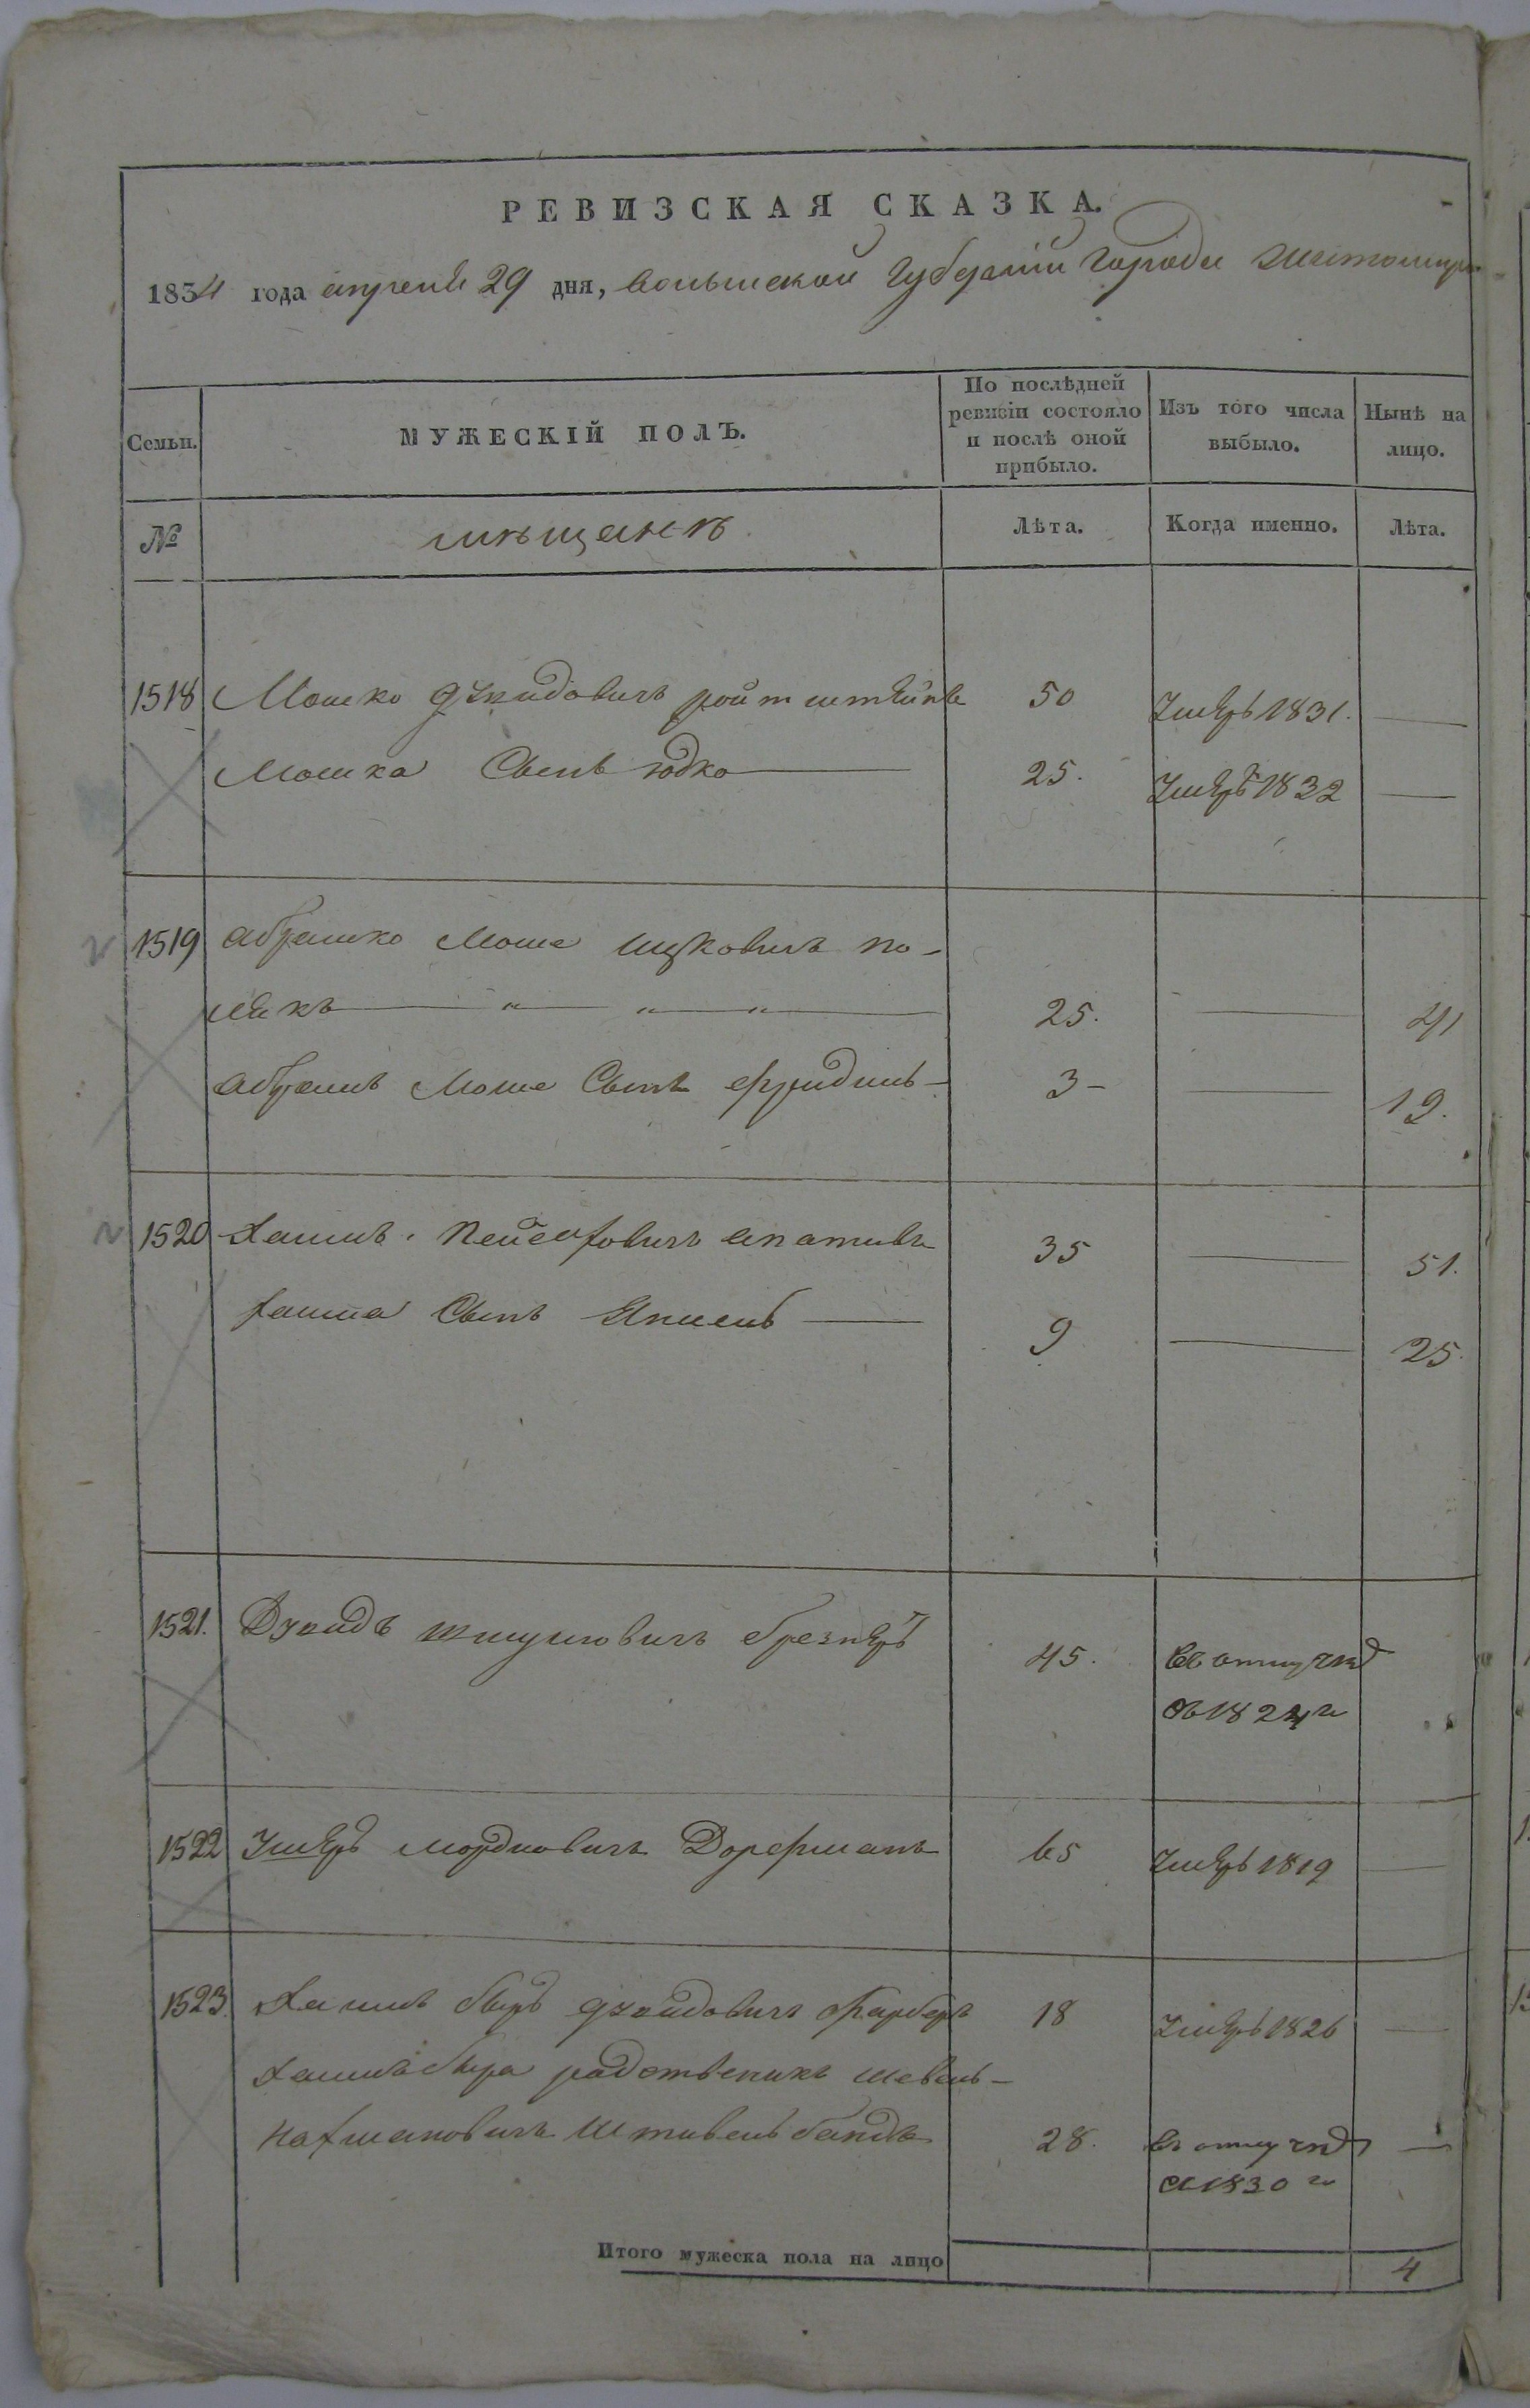 РЕВИЗСКАЯ СКАЗКА.
1834 года апреля 29 дня, волынской губернии города житомира
Семьи. МУЖЕСКІЙ ПОЛЪ. По послѣдней ревизіи состояло и послѣ оной прибыло. Изъ того числа выбыло. Нынѣ на лицо.
№ мѣщанъ Лѣта. Когда именно. Лѣта.
1518 Мошко Дувидовичъ ройтштейнъ 50 Умеръ 1831.
Мошка Сынъ юдко 25. Умеръ 1832
1519 абрамко Моше ицковичъ по-
лякъ 25. 41
абрамъ Моше Сынъ фридель 3 19.
1520 Хаимъ Пейсаховичъ 35 51.
хаима Сынъ Янкель 9 25.
1521. Дувидъ брезнеръ 45. въ отлучкѣ
съ 1824 г
1522 Умеръ мордковичъ Дорфманъ 65 Умеръ 1819
1523. Хаимъ беръ дувидовичъ Фарберъ 18 Умеръ 1826
Хаимъ бера родственикъ шевель
нахмановичъ Штивельбандъ 28. въ отлучкѣ
съ 1830 г
Итого мужеска пола на лицо 4